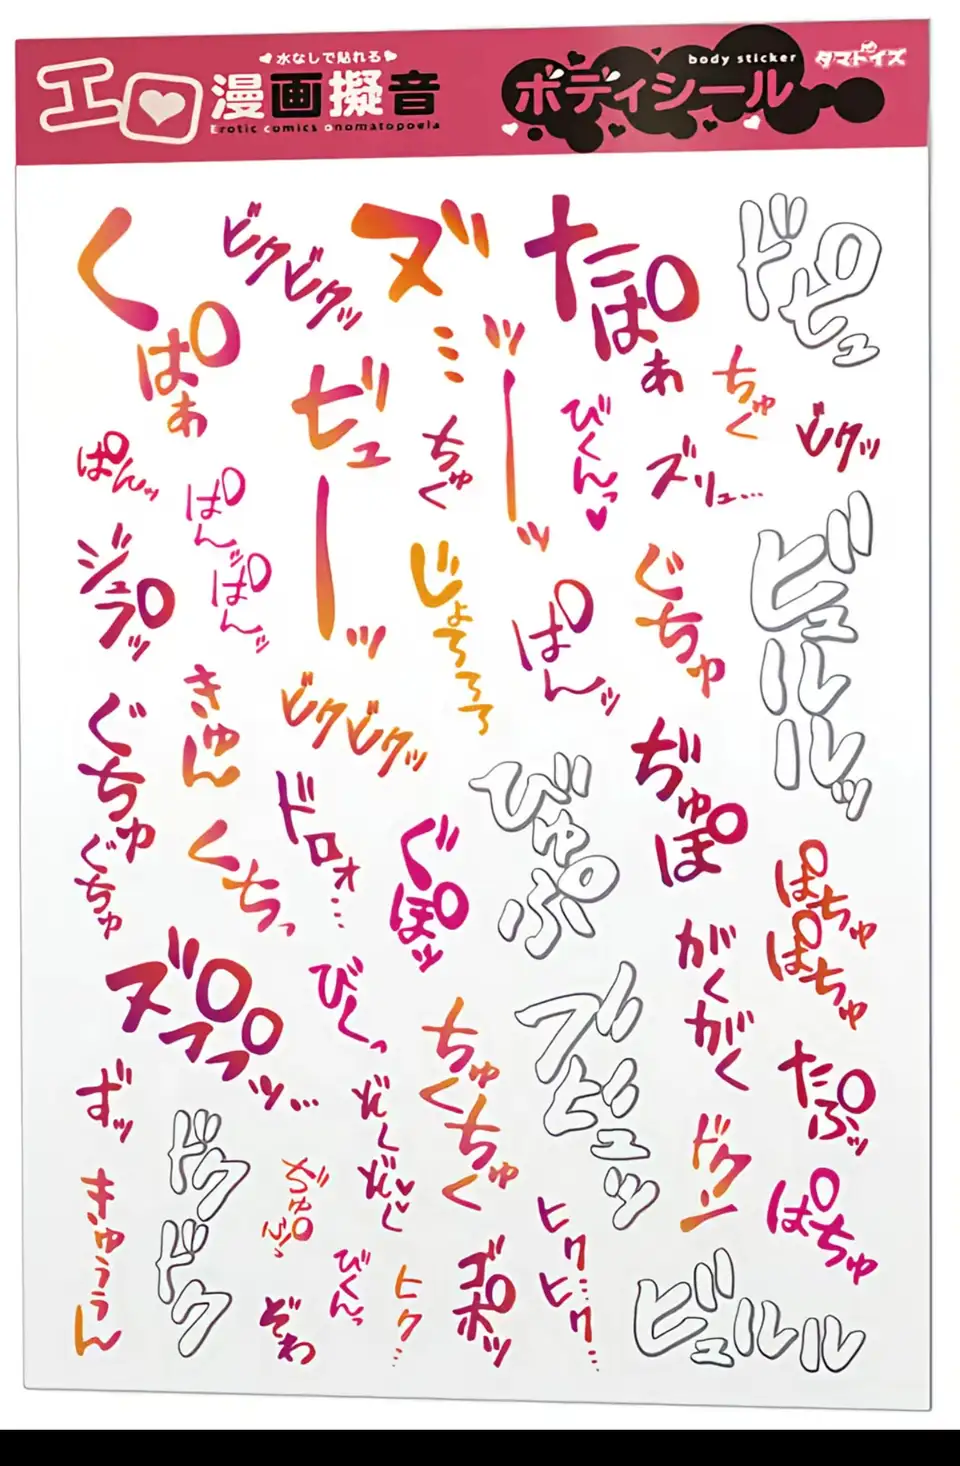 水なしで貼れる
エロ漫画擬音
Erotic comics onomatopoeia
ボディシール
body sticker
タマトイズ
くぱぁ
ビクビクッ
ズ…ーッ
たぱぁ
ドピュ
ビューーッ
ちゅく
びくんっ
ちゅく
ズリュ…
ビクッ
ぱんッ
ぱんッぱんッ
ジュプッ
じょろろろ
ぱんッ
ぐちゅ
ビュルルルッ
きゅん
ビクビクッ
ぐちゅぐちゅ
くちっ
ドロォ…
ぐぽッ
びゅぷ
ぢゅぽ
ぱちゅぱちゅ
ズププッ…
びくっ
ちゅくちゅく
ブビュッ
がくがく
たぷッ
ずッ
ドクドク
ぞくぞく
ドクン
ぱちゅ
きゅうん
びくんっ
ぞわ
ヒク…
ゴポッ
ヒクヒク…
ビュルルル